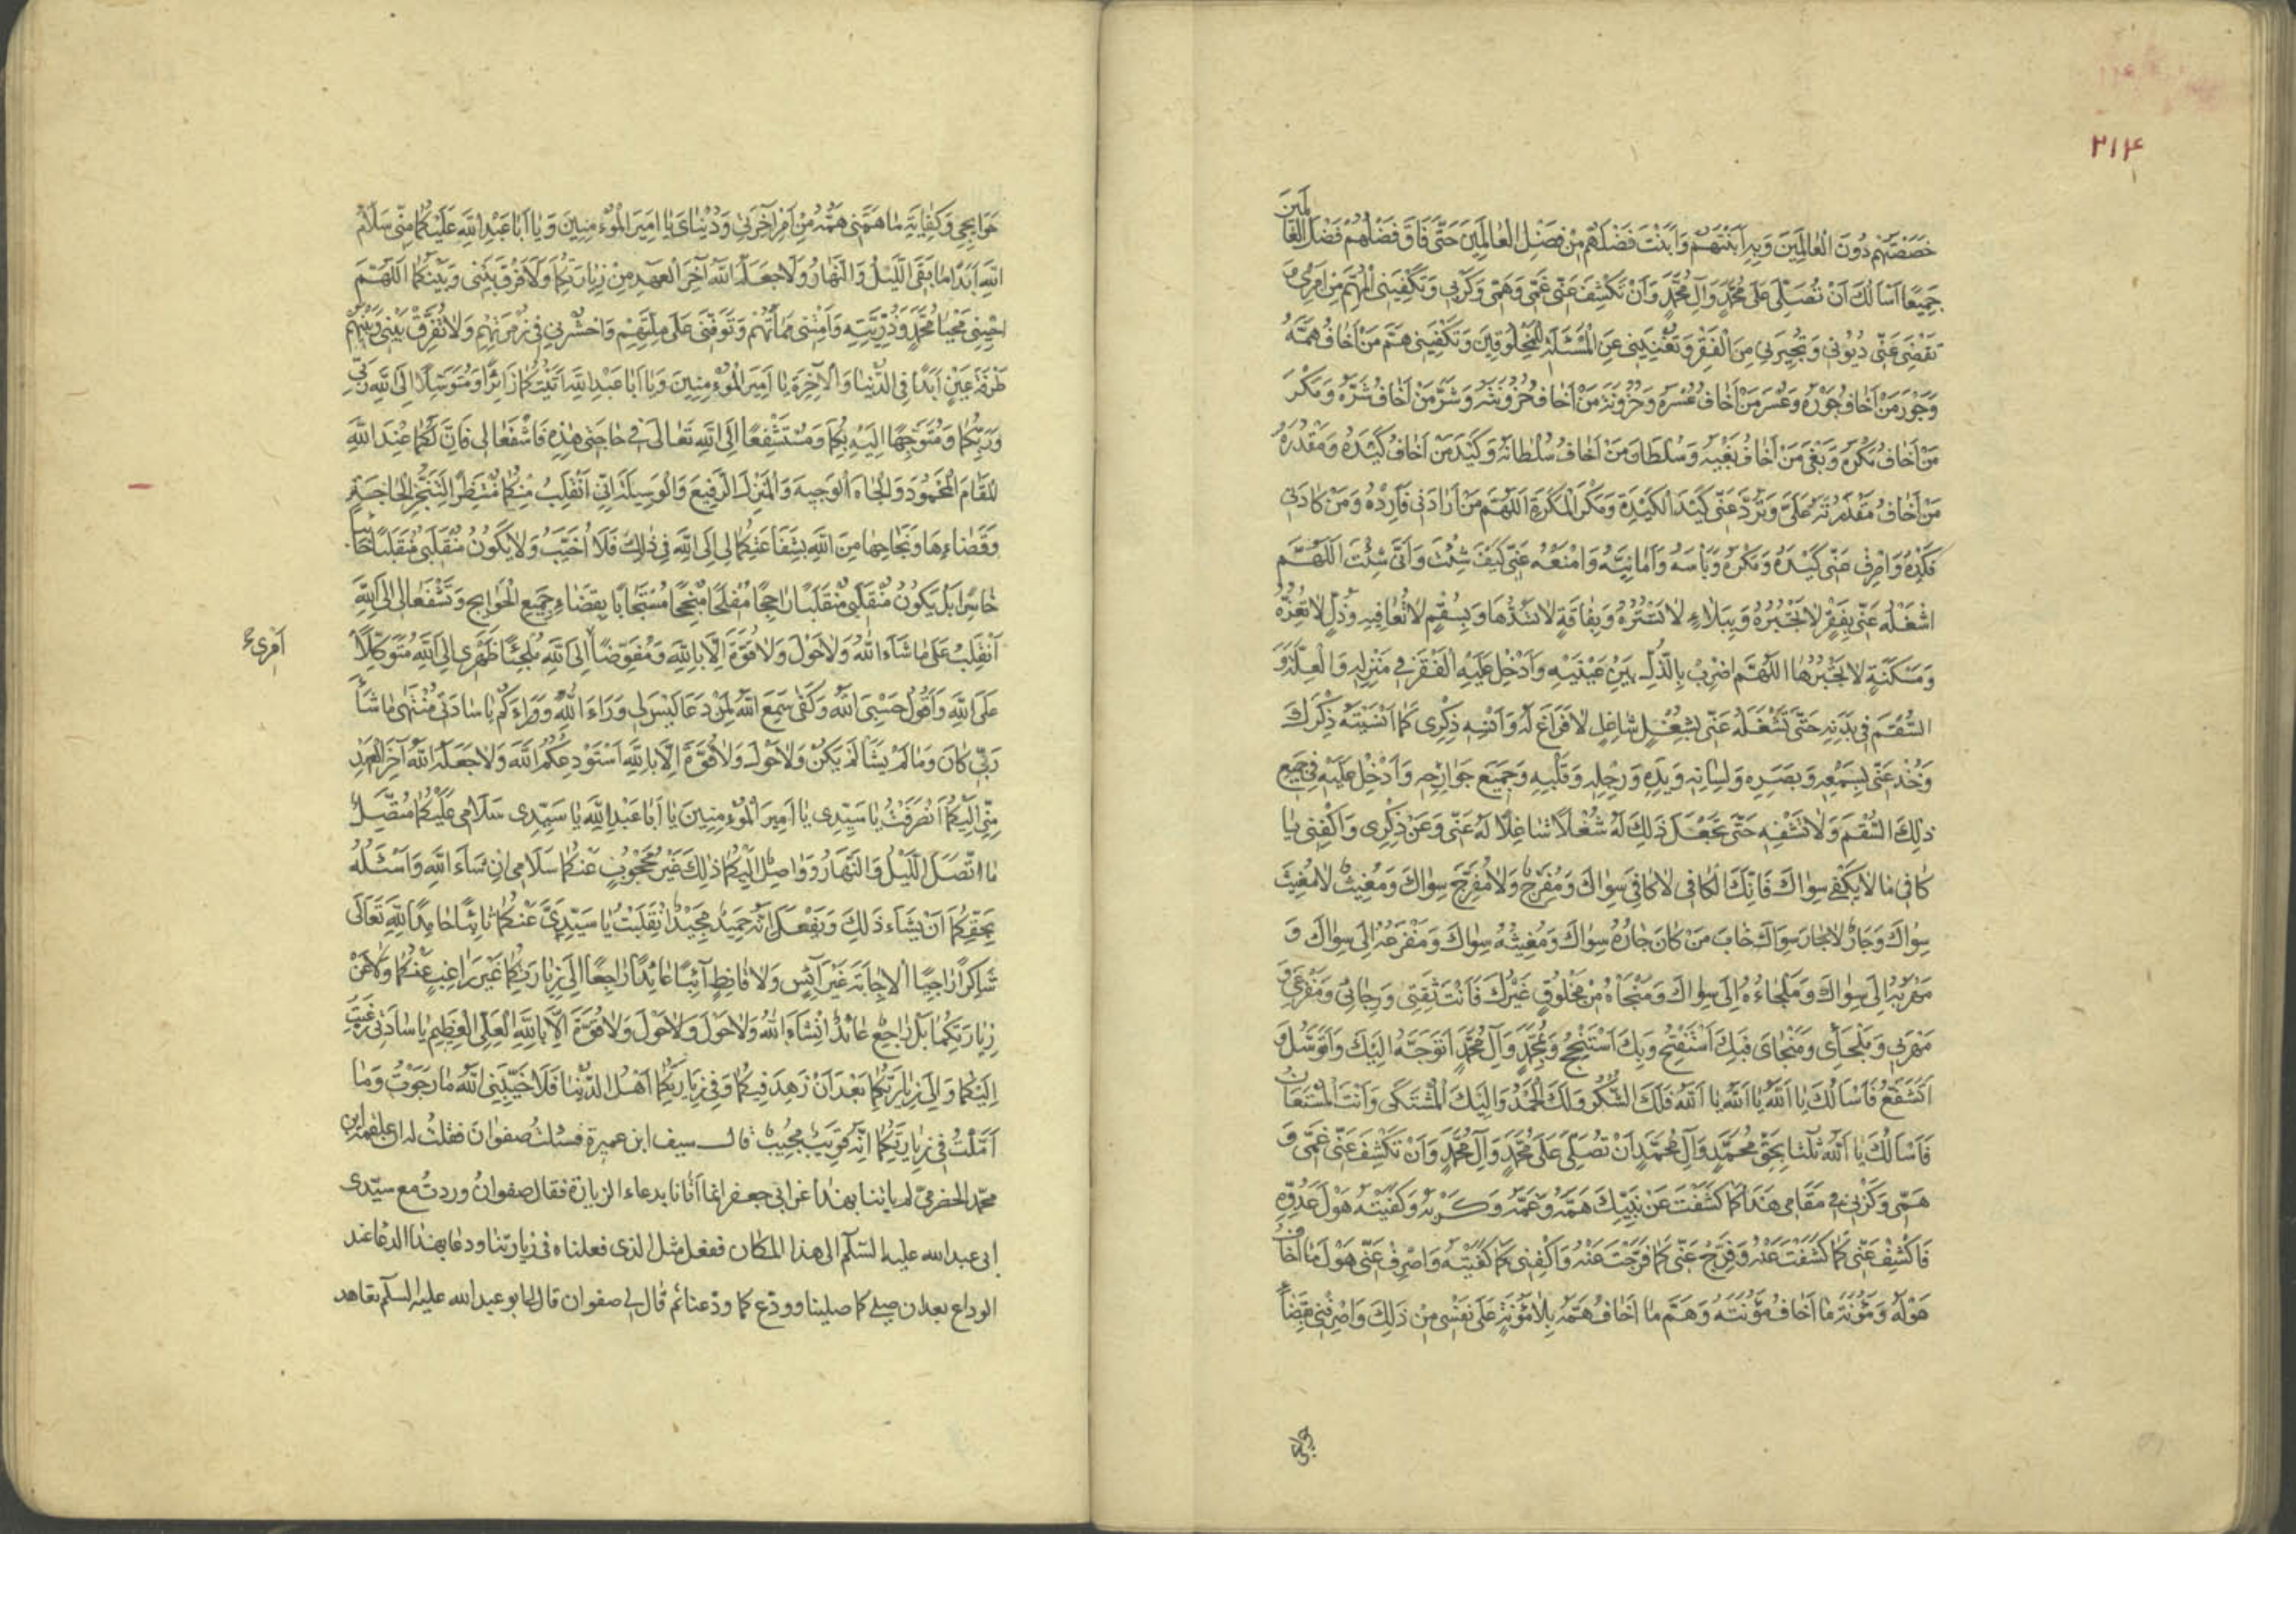 ۲۱۴
خَصَصْتَهُمْ دُونَ الْعٰالَمِينَ وَبِهِ اَبَنْتَهُمْ وَاَبَنْتَ فَضْلَهُمْ مِنْ فَضْلِ الْعٰالَمِينَ حَتّٰى فَاقَ فَضْلُهُمْ فَضْلَ الْعٰالَمِينَ
جَمِيعًا اَسْاَلُكَ اَنْ تُصَلِّىَ عَلٰى مُحَمَّدٍ وَآلِ مُحَمَّدٍ وَاَنْ تَكْشِفَ عَنّى غَمّى وَهَمّى وَكَرْبى وَتَكْفِيَنِى الْمُهِمَّ مِنْ اُمُرى وَ
تَقْضِىَ عَنّى دُيُونى وَتُجِيرَنى مِنَ الْفَقْرِ وَتُغْنِيَنى عَنِ الْمَسْئَلَةِ لِلْمَخْلُوقِينَ وَتَكْفِيَنى هَمَّ مَنْ اَخٰافُ هَمَّهُ
وَجَوْرَ مَنْ اَخٰافُ جَوْرَهُ وَعُسْرَ مَنْ اَخٰافُ عُسْرَهُ وَحُزُونَةَ مَنْ اَخٰافُ حُزُونَتَهُ وَشَرَّ مَنْ اَخٰافُ شَرَّهُ وَمَكْرَ
مَنْ اَخٰافُ مَكْرَهُ وَبَغْىَ مَنْ اَخٰافُ بَغْيَهُ وَسُلْطَانَ مَنْ اَخٰافُ سُلْطَانَهُ وَكَيْدَ مَنْ اَخٰافُ كَيْدَهُ وَمَقْدُرَةَ
مَنْ اَخٰافُ مَقْدُرَتَهُ عَلَىَّ وَتَرُدَّ عَنّى كَيْدَ الْكَيَدَةِ وَمَكْرَ الْمَكَرَةِ اَللّٰهُمَّ مَنْ اَرَادَنى فَاَرِدْهُ وَمَنْ كَادَنى
فَكِدْهُ وَاصْرِفْ عَنّى كَيْدَهُ وَمَكْرَهُ وَبَاْسَهُ وَاَمَانِيَّهُ وَامْنَعْهُ عَنّى كَيْفَ شِئْتَ وَاَنّٰى شِئْتَ اَللّٰهُمَّ
اشْغَلْهُ عَنّى بِفَقْرٍ لٰا تَجْبُرُهُ وَبِبَلٰاءٍ لٰا تَسْتُرُهُ وَبِفَاقَةٍ لٰا تَسُدُّهَا وَبِسُقْمٍ لٰا تُعَافِيهِ وَذُلٍّ لٰا تُعِزُّهُ
وَمَسْكَنَةٍ لٰا تَجْبُرُهٰا اَللّٰهُمَّ اضْرِبْ بِالذُّلِّ بَيْنَ عَيْنَيْهِ وَاَدْخِلْ عَلَيْهِ الْفَقْرَ فى مَنْزِلِهِ وَالْعِلَّةَ وَ
السُّقْمَ فى بَدَنِهِ حَتّٰى تَشْغَلَهُ عَنّى بِشُغْلٍ شَاغِلٍ لٰا فَرَاغَ لَهُ وَاَنْسِهِ ذِكْرى كَمٰا اَنْسَيْتَهُ ذِكْرَكَ
وَخُذْ عَنّى بِسَمْعِهِ وَبَصَرِهِ وَلِسٰانِهِ وَيَدِهِ وَرِجْلِهِ وَقَلْبِهِ وَجَمِيعِ جَوَارِحِهِ وَاَدْخِلْ عَلَيْهِ فى جَمِيعِ
ذٰلِكَ السُّقْمَ وَلٰا تَشْفِهِ حَتّٰى تَجْعَلَ ذٰلِكَ لَهُ شُغْلًا شٰاغِلًا لَهُ عَنّى وَعَنْ ذِكْرى وَاكْفِنى يٰا
كٰافِىَ مٰا لٰا يَكْفى سِوَاكَ فَاِنَّكَ الْكٰافى لٰا كٰافِىَ سِوَاكَ وَمُفَرِّجٌ وَلٰا مُفَرِّجَ سِوَاكَ وَمُغِيثٌ لٰا مُغِيثَ
سِوَاكَ وَجَارٌ لٰا جٰارَ سِوَاكَ خٰابَ مَنْ كَانَ جٰارُهُ سِوَاكَ وَمُغِيثُهُ سِوٰاكَ وَمَفْزَعُهُ اِلٰى سِوَاكَ وَ
مَهْرَبُهُ اِلٰى سِوَاكَ وَمَلْجَاءُهُ اِلٰى سِوَاكَ وَمَنْجٰاهُ مِنْ مَخْلُوقٍ غَيْرِكَ فَاَنْتَ ثِقَتى وَرَجٰائى وَمَفْزَعى وَ
مَهْرَبى وَمَلْجَأى وَمَنْجٰاىَ فَبِكَ اَسْتَفْتِحُ وَبِكَ اَسْتَنْجِحُ وَبِمُحَمَّدٍ وَآلِ مُحَمَّدٍ اَتَوَجَّهُ اِلَيْكَ وَاَتَوَسَّلُ وَ
اَتَشَفَّعُ فَاَسْاَلُكَ يٰا اَللّٰهُ يٰا اَللّٰهُ يٰا اَللّٰهُ فَلَكَ الشُّكْرُ وَلَكَ الْحَمْدُ وَاِلَيْكَ الْمُشْتَكٰى وَاَنْتَ الْمُسْتَعَانُ
فَاَسْاَلُكَ يٰا اَللّٰهُ ثَلٰثًا بِحَقِّ مُحَمَّدٍ وَآلِ مُحَمَّدٍ اَنْ تُصَلِّىَ عَلٰى مُحَمَّدٍ وَآلِ مُحَمَّدٍ وَاَنْ تَكْشِفَ عَنّى غَمّى وَ
هَمّى وَكَرْبى فى مَقَامى هَذَا كَمٰا كَشَفْتَ عَنْ نَبِيِّكَ هَمَّهُ وَغَمَّهُ وَكَرْبَهُ وَكَفَيْتَهُ هَوْلَ عَدُوِّهِ
فَاكْشِفْ عَنّى كَمٰا كَشَفْتَ عَنْهُ وَفَرِّجْ عَنّى كَمٰا فَرَّجْتَ عَنْهُ وَاكْفِنى كَمٰا كَفَيْتَهُ وَاصْرِفْ عَنّى هَوْلَ مٰا اَخٰافُ
هَوْلَهُ وَمَؤُنَةَ مٰا اَخٰافُ مَؤُنَتَهُ وَهَمَّ مٰا اَخٰافُ هَمَّهُ بِلٰا مَؤُنَةٍ عَلٰى نَفْسى مِنْ ذٰلِكَ وَاصْرِفْنى بِقَضٰاءِ
حَوَايِجى وَكِفٰايَةِ مٰا هَمَّنى هَمُّهُ مِنْ اَمْرِ آخِرَتى وَدُنْيٰاىَ يٰا اَمِيرَ الْمُؤْمِنِينَ وَيٰا اَبٰا عَبْدِ اللّٰهِ عَلَيْكُمٰا مِنّى سَلَامُ
اللّٰهِ اَبَدًا مٰا بَقِىَ اللَّيْلُ وَالنَّهَارُ وَلٰا جَعَلَهُ اللّٰهُ آخِرَ الْعَهْدِ مِنْ زِيٰارَتِكُمٰا وَلٰا فَرَّقَ بَيْنى وَبَيْنَكُمٰا اَللّٰهُمَّ
احْيِنى مَحْيٰا مُحَمَّدٍ وَذُرِّيَّتِهِ وَاَمِتْنى مَمٰاتَهُمْ وَتَوَفَّنى عَلٰى مِلَّتِهِمْ وَاحْشُرْنى فى زُمْرَتِهِمْ وَلٰا تُفَرِّقْ بَيْنى وَبَيْنَهُمْ
طَرْفَةَ عَيْنٍ اَبَدًا فِى الدُّنْيٰا وَالْآخِرَةِ يٰا اَمِيرَ الْمُؤْمِنِينَ وَيٰا اَبٰا عَبْدِ اللّٰهِ اَتَيْتُكُمٰا زَائِرًا وَمُتَوَسِّلًا اِلَى اللّٰهِ رَبّى
وَرَبِّكُمٰا وَمُتَوَجِّهًا اِلَيْهِ بِكُمٰا وَمُسْتَشْفِعًا اِلَى اللّٰهِ تَعَالٰى فى حَاجَتى هٰذِهِ فَاشْفَعٰا لى فَاِنَّ لَكُمٰا عِنْدَ اللّٰهِ
الْمَقَامَ الْمَحْمُودَ وَالْجٰاهَ الْوَجِيهَ وَالْمَنْزِلَ الرَّفِيعَ وَالْوَسِيلَةَ اِنّى اَنْقَلِبُ مِنْكُمٰا مُنْتَظِرًا لِتَنَجُّزِ الْحَاجَةِ
وَقَضٰاءِهَا وَنَجٰاحِهٰا مِنَ اللّٰهِ بِشَفٰاعَتِكُمٰا لى اِلَى اللّٰهِ فى ذٰلِكَ فَلٰا اَخِيبُ وَلٰا يَكُونُ مُنْقَلَبى مُنْقَلَبًا خٰائِبًا
خٰاسِرًا بَلْ يَكُونُ مُنْقَلَبى مُنْقَلَبًا رٰاجِحًا مُفْلِحًا مُنْجِحًا مُسْتَجٰابًا بِقَضٰاءِ جَمِيعِ الْحَوَايِجِ وَتَشَفَّعٰا لى اِلَى اللّٰهِ
اَنْقَلِبُ عَلٰى مٰا شَآءَ اللّٰهُ وَلٰا حَوْلَ وَلٰا قُوَّةَ اِلَّا بِاللّٰهِ وَمُفَوِّضًا اِلَى اللّٰهِ مُلْجِئًا ظَهْرى اِلَى اللّٰهِ مُتَوَكِّلًا
عَلَى اللّٰهِ وَاَقُولُ حَسْبِىَ اللّٰهُ وَكَفٰى سَمِعَ اللّٰهُ لِمَنْ دَعَا لَيْسَ لى وَرَاءَ اللّٰهِ وَوَرَاءَكُمْ يٰا سَادَتى مُنْتَهٰى مٰا شَآءَ
رَبّى كٰانَ وَمٰا لَمْ يَشَأْ لَمْ يَكُنْ وَلٰا حَوْلَ وَلٰا قُوَّةَ اِلَّا بِاللّٰهِ اَسْتَوْدِعُكُمَا اللّٰهَ وَلٰا جَعَلَهُ اللّٰهُ آخِرَ الْعَهْدِ
مِنّى اِلَيْكُمٰا اَنْصَرَفْتُ يٰا سَيِّدى يٰا اَمِيرَ الْمُؤْمِنِينَ يٰا اَبٰا عَبْدِ اللّٰهِ يٰا سَيِّدى سَلَامى عَلَيْكُمٰا مُتَّصِلٌ
مَا اتَّصَلَ اللَّيْلُ وَالنَّهَارُ وَوٰاصِلٌ اِلَيْكُمٰا ذٰلِكَ غَيْرُ مَحْجُوبٍ عَنْكُمٰا سَلَامى اِنْ شَاءَ اللّٰهُ وَاَسْئَلُهُ
بِحَقِّكُمٰا اَنْ يَشَاءَ ذٰلِكَ وَيَفْعَلَ اِنَّهُ حَمِيدٌ مَجِيدٌ انْقَلَبْتُ يٰا سَيِّدَىَّ عَنْكُمٰا تٰائِبًا حٰامِدًا لِلّٰهِ تَعَالٰى
شٰاكِرًا رٰاجِيًا الْاِجٰابَةَ غَيْرَ آيِسٍ وَلٰا قٰانِطٍ آئِبًا عٰائِدًا رٰاجِعًا اِلٰى زِيٰارَتِكُمٰا غَيْرَ رَاغِبٍ عَنْكُمٰا وَلٰا عَنْ
زِيٰارَتِكُمٰا بَلْ رٰاجِعٌ عٰائِدٌ اِنْشَاءَ اللّٰهُ وَلٰا حَوْلَ وَلٰا حَوْلَ وَلٰا قُوَّةَ اِلَّا بِاللّٰهِ الْعَلِىِّ الْعَظِيمِ يٰا سٰادَتى رَغِبْتُ
اِلَيْكُمٰا وَاِلٰى زِيٰارَتِكُمٰا بَعْدَ اَنْ زَهِدَ فِيكُمٰا وَفى زِيٰارَتِكُمٰا اَهْلُ الدُّنْيٰا فَلٰا خَيَّبَنِىَ اللّٰهُ مٰا رَجَوْتُ وَمٰا
اَمَّلْتُ فى زِيٰارَتِكُمٰا اِنَّهُ قَرِيبٌ مُجِيبٌ قال سيف ابن عميرة فسئلت صفوان فقلت له ان علقمة ابن
محمّد الحضرمىّ لم ياتنا بهذا عن ابى جعفر انما اتانا بدعاء الزيارة فقال صفوان وردت مع سيّدى
ابى عبدالله عليه السّلم الى هذا المكان ففعل مثل الذى فعلناه فى زيارتنا ودعا بهذا الدعا عند
الوداع بعد ان صلى كما صلينا وودّع كما ودّعنا ثم قال لى صفوان قال لى ابو عبدالله عليه السلم تعاهد